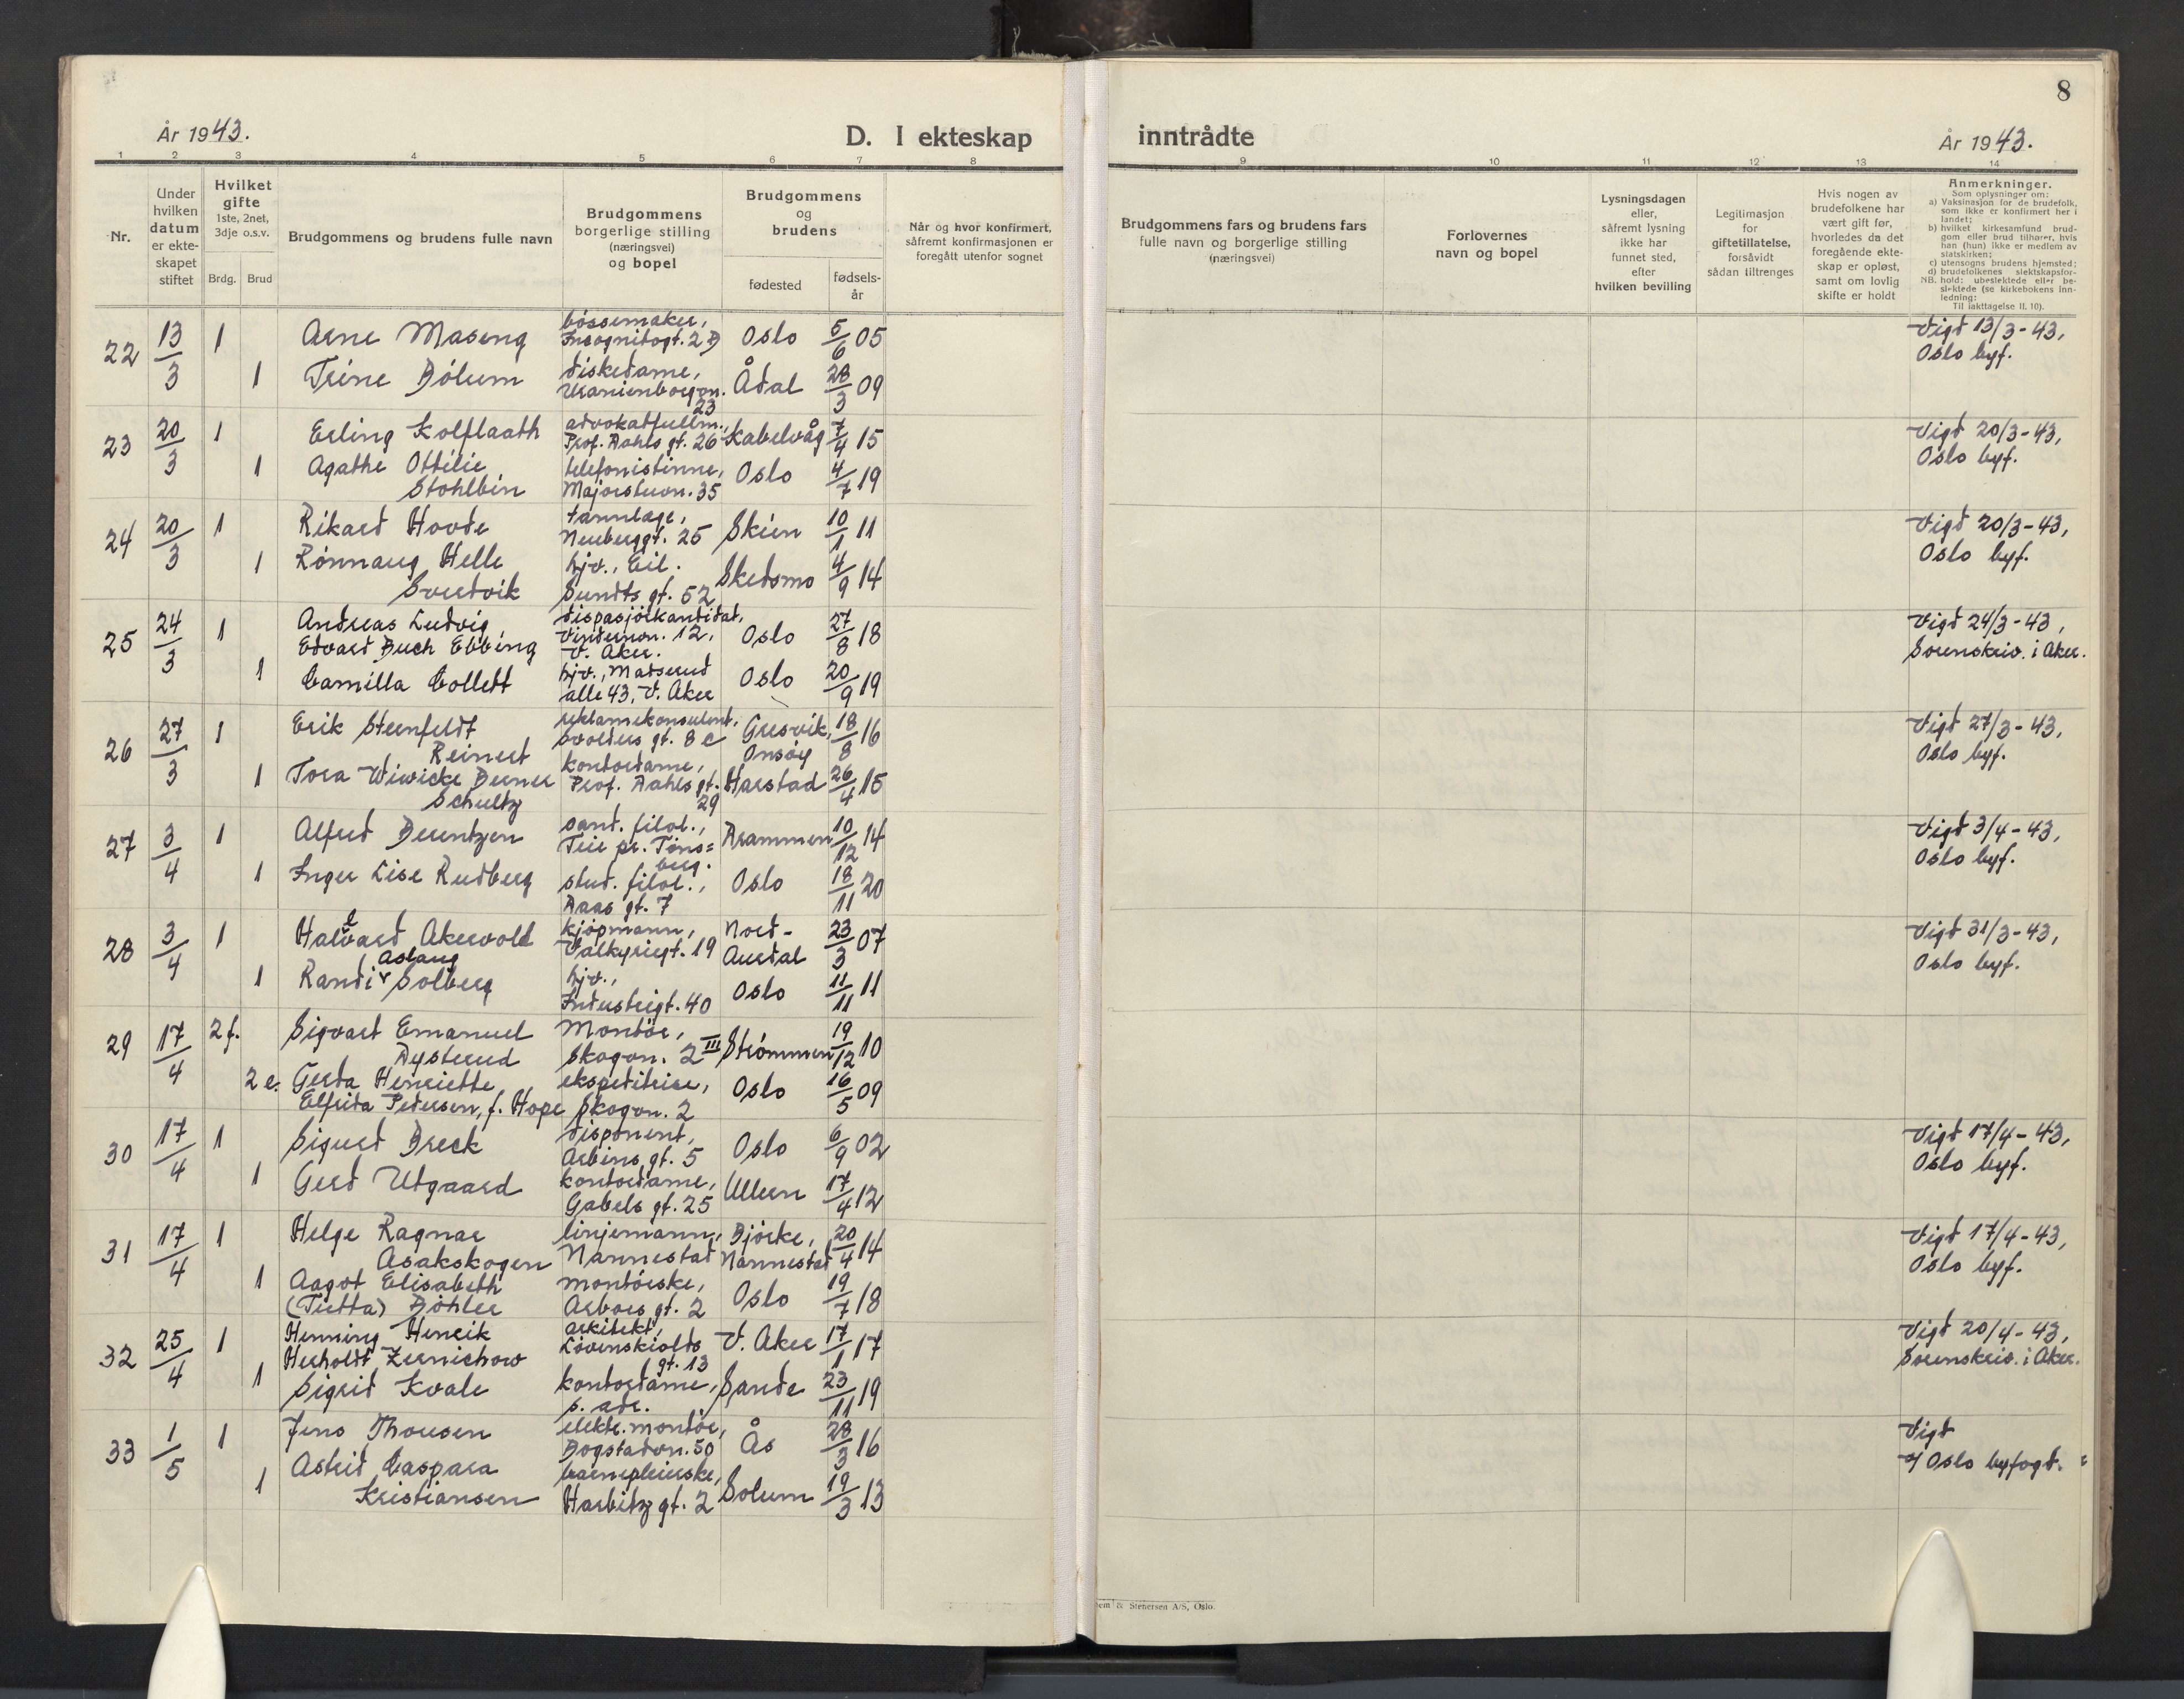 8
År 1943.
D. I ekteskap
inntrådte
År 1943.
1 2 3 4 5 6 7 8 9 10 11 12 13 14
Nr.
Under
hvilken
datum
er ekte-
skapet
stiftet
Hvilket
gifte
1ste, 2net,
3dje o.s.v.
Brdg. Brud
Brudgommens og brudens fulle navn
Brudgommens
borgerlige stilling
(næringsvei)
og bopel
Brudgommens
og
brudens
fødested
fødsels-
år
Når og hvor konfirmert,
såfremt konfirmasjonen er
foregått utenfor sognet
Brudgommens fars og brudens fars
fulle navn og borgerlige stilling
(næringsvei)
Forlovernes
navn og bopel
Lysningsdagen
eller,
såfremt lysning
ikke har
funnet sted,
efter
hvilken bevilling
Legitimasjon
for
giftetillatelse,
forsåvidt
sådan tiltrenges
Hvis nogen av
brudefolkene har
vært gift før,
hvorledes da det
foregående ekte-
skap er opløst,
samt om lovlig
skifte er holdt
Anmerkninger.
Som oplysninger om:
a) Vaksinasjon for de brudefolk,
som ikke er konfirmert her i
landet;
b) hvilket kirkesamfund brud-
gom eller brud tilhører, hvis
han (hun) ikke er medlem av
statskirken;
c) utensogns brudens hjemsted;
d) brudefolkenes slektskapsfor-
NB. hold: ubeslektede eller be-
slektede (se kirkebokens inn-
ledning:
Til iakttagelse II. 10).
22 13/3 1 Arne Maseng bøssemaker, Incognitogt. 2 B Oslo 5/6 05 Vigd 13/3-43,
Oslo byf.
1 Trine Bölum diskedame, Uranienborgvn. 23 Ådal 28/3 09
23 20/3 1 Erling Kolflaath advokatfullm., Prof. Dahls gt. 26 Kabelvåg 7/4 15 Vigd 20/3-43,
Oslo byf.
1 Agathe Ottilie Stohlbin telefonistinne, Majorstuvn. 35 Oslo 4/7 19
24 20/3 1 Rikard Hovde tannlæge, Neuberggt. 25 Skien 10/1 11 Vigd 20/3-43,
Oslo byf.
1 Rönnaug Helle Svertvik hjv., Eil. Sundts gt. 52 Skedsmo 4/9 14
25 24/3 1 Andreas Ludvig Edvard Buch Ebbing dispasjörkandidat, Vindernvn. 12, V. Aker. Oslo 27/8 18 Vigd 24/3-43,
Sorenskriv. i Aker.
1 Camilla Collett hjv., Madserud alle 43, V. Aker Oslo 20/9 19
26 27/3 1 Erik Steenfeldt Reinert reklamekonsulent, Svolders gt. 8 c Gresvik, Onsøy 18/8 16 Vigd 27/3-43,
Oslo byf.
1 Tora Wiwicke Berner Schultz kontordame, Prof. Dahls gt. 29 Harstad 26/4 15
27 3/4 1 Alfred Berentzen cand. filol., Teie pr. Töns=berg. Drammen 10/12 14 Vigd 3/4-43,
Oslo byf.
1 Inger Lise Rudberg stud. filol., Daas gt. 7 Oslo 18/11 20
28 3/4 1 Halvard Akervold kjöpmann, Valkyriegt. 19 Nord-Aurdal 23/3 07 Vigd 31/3-43,
Oslo byf.
1 Randi Aslaug Solberg hjv., Industrigt. 40 Oslo 11/11 11
29 17/4 2 f. Sigvart Emanuel Dysterud Montör, Skogvn. 2 III Strömmen 19/12 10
2 e. Gerda Henriette Elfrida Pedersen, f. Hope ekspeditrise, Skogvn. 2 Oslo 16/5 09
30 17/4 1 Sigurd Breck disponent, Arbins gt. 5 Oslo 6/9 02 Vigd 17/4-43,
Oslo byf.
1 Gerd Utgaard kontordame, Gabels gt. 25 Ullern 17/4 12
31 17/4 1 Helge Ragnar Asakskogen linjemann, Nannestad Bjørke, Nannestad 20/4 14 Vigd 17/4-43,
Oslo byf.
1 Aagot Elisabeth (Tietta) Böhler montörske, Arbos gt. 2 Oslo 19/7 18
32 25/4 1 Henning Henrik Herholdt Zernichow arkitekt, Lövenskiolds gt. 13 V. Aker 17/1 17 Vigd 20/4-43,
Sorenskriv. i Aker.
1 Sigrid Kvale kontordame, s. adr. Sande 23/11 19
33 1/5 1 Jens Thoresen elektr. montör, Bogstadvn. 50 Ås 28/3 16 Vigd
af Oslo byfogd.
1 Astrid Caspara Kristiansen barnepleierske, Harbitz gt. 2 Solum 19/3 13
& Stenersen A/S, Oslo.